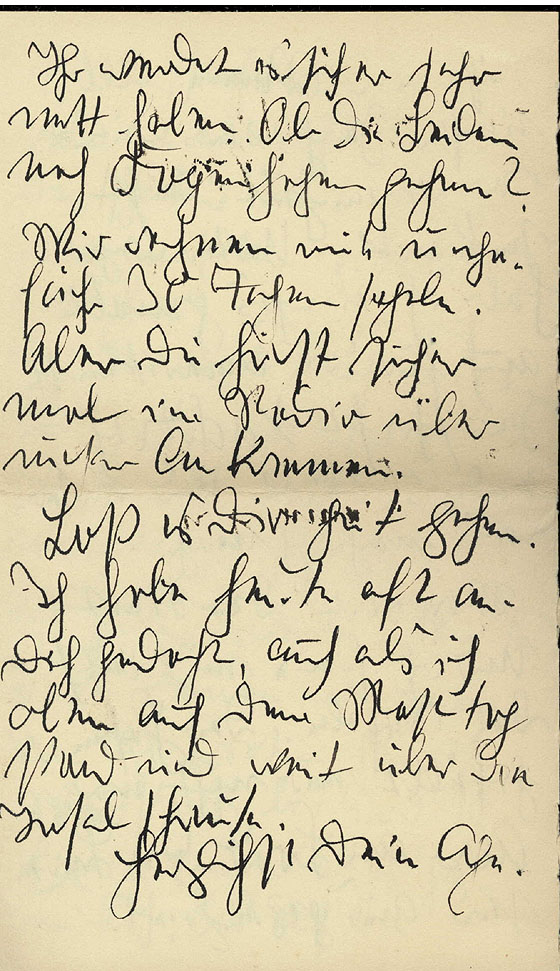 Ihr werdet es sicher sehr
nett haben. Ob die beiden
nach gehen?
Wir rechnen mit unge-
fähr 30 Tagen segeln.
Aber Du hörst sicher
mal im Radio über
unser Ankommen.
Laß es Dir gut gehen.
Ich habe heute oft an
Dich gedacht, auch als ich
oben auf dem Masttop
stand und weit über die
Insel schaute.
Herzlichst Dein